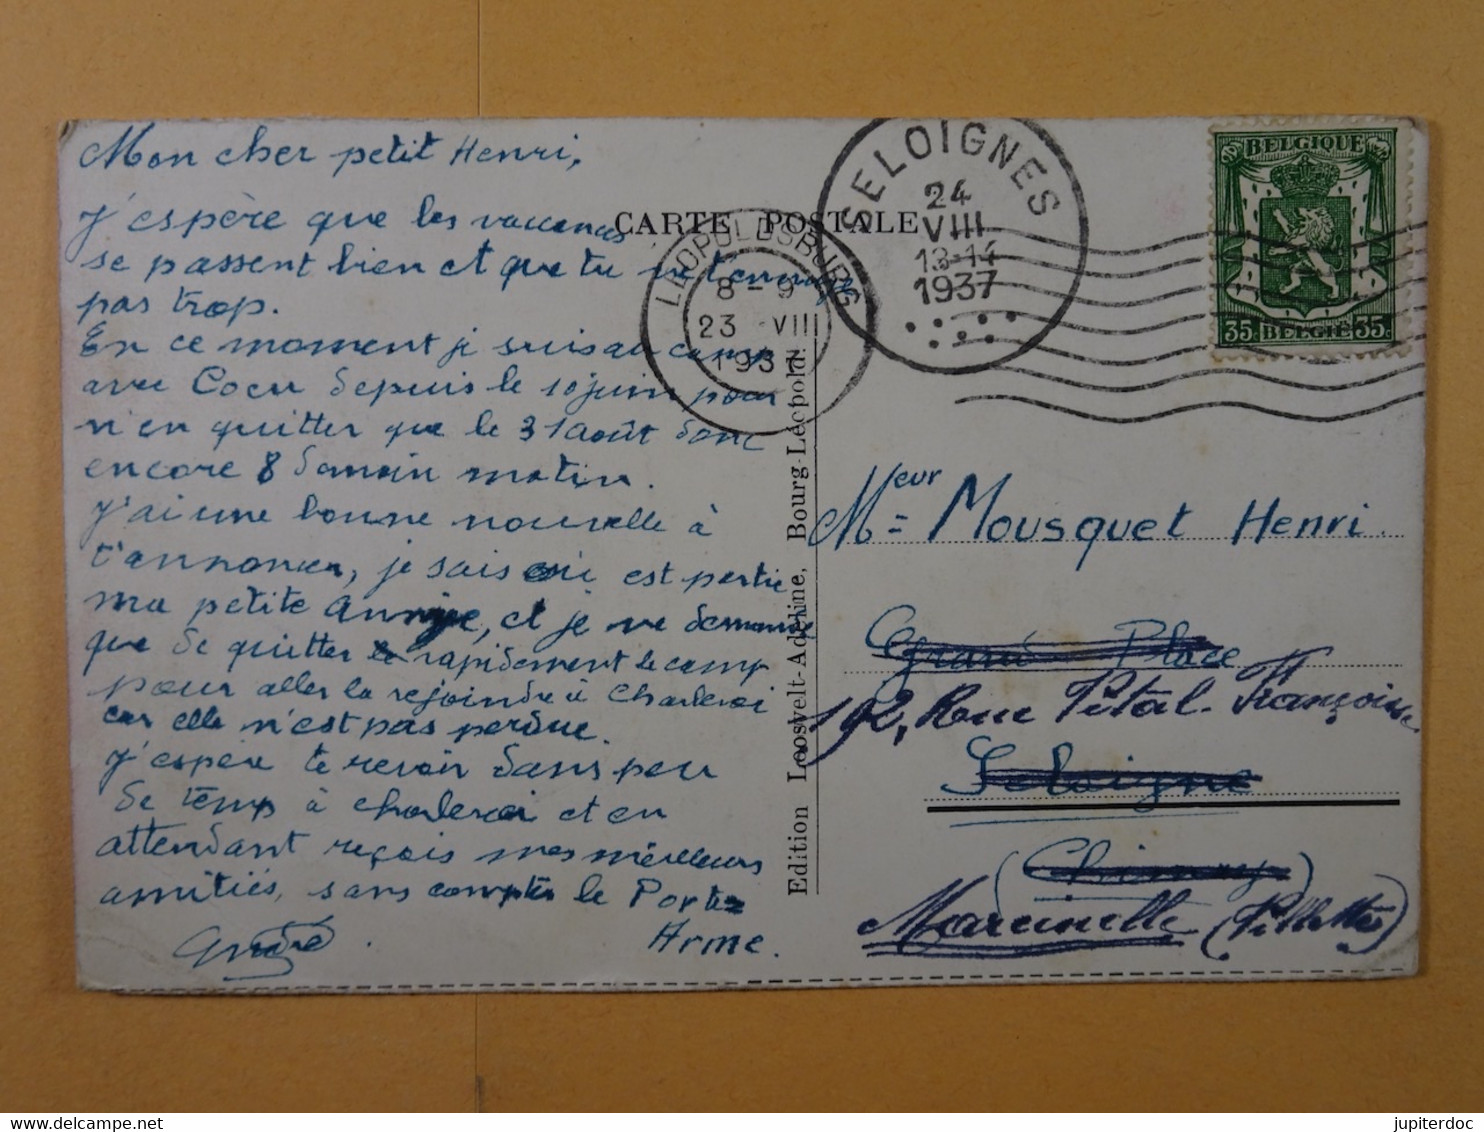 Mon cher petit Henri,
J'espère que les vacances
se passent bien et que tu ne t'ennuye
pas trop.
En ce moment je suis au camp
avec Coeu depuis le 10 juin pour
n'en quitter que le 31 Août donc
encore 8 demain matin.
J'ai une bonne nouvelle à
t'annoncer, je sais où est partie
ma petite, et je ne demande
que de quitter rapidement le camp
pour aller la rejoindre à Charleroi
car elle n'est pas perdue.
J'espère te revoir dans peu
de temps à charleroi et en
attendant reçois mes meilleurs
amitiés, sans compter le Porte=
Arme.
André
CARTE POSTALE
LEOPOLDSBURG
8-9
23 VIII
1937
SELOIGNES
24
VIII
13-14
1937
BELGIQUE
35c BELGIË 35c
Edition Loosvelt-Adeline, Bourg-Léopold.
Meur = Mousquet Henri
Grand' Place
192, Rue Pital-Françoise
Seloigne
(Chimay)
Marcinelle (Villette)
delcampe.net
jupiterdoc